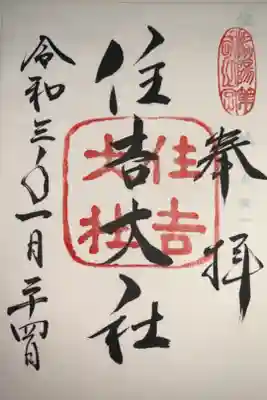 奉拝
住吉大社
住吉
大社
令和三年一月二十四日